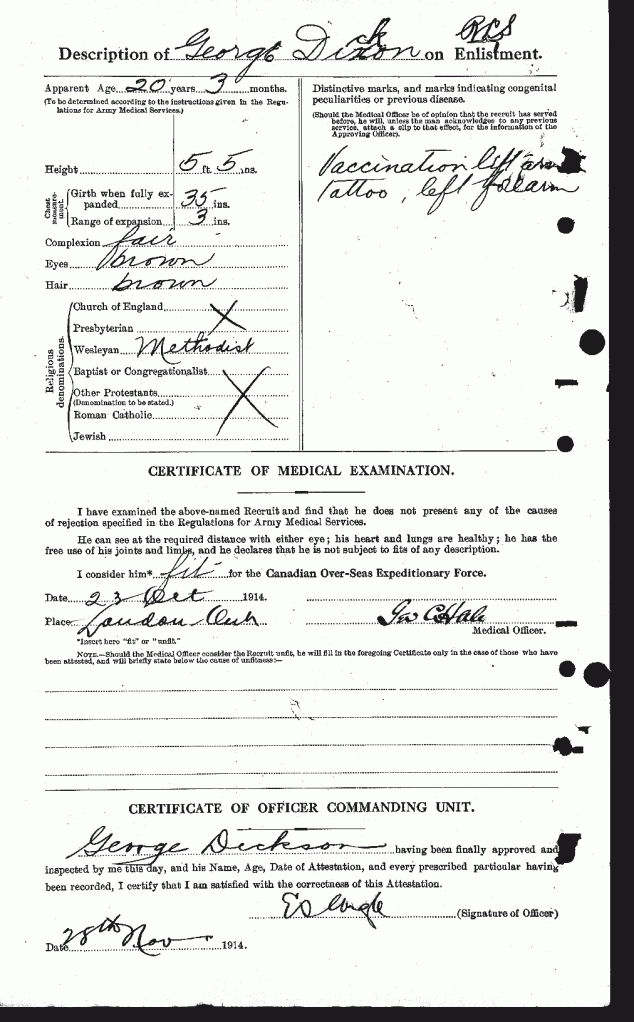 Description of George Dixon on Enlistment.
ck
Apparent Age 20 years 3 months.
(To be determined according to the instructions given in the Regu-
lations for Army Medical Services.)
Height 5 ft. 5 ins.
Chest measure-
ment.
Girth when fully ex-
panded 35 ins.
Range of expansion 3 ins.
Complexion fair
Eyes brown
Hair brown
Religious
denominations.
Church of England
Presbyterian
Wesleyan Methodist
Baptist or Congregationalist
Other Protestants
(Denomination to be stated.)
Roman Catholic
Jewish
Distinctive marks, and marks indicating congenital
peculiarities or previous disease.
(Should the Medical Officer be of opinion that the recruit has served
before, he will, unless the man acknowledges to any previous
service, attach a slip to that effect, for the information of the
Approving Officer).
Vaccination left arm
Tattoo, left forearm
CERTIFICATE OF MEDICAL EXAMINATION.
I have examined the above-named Recruit and find that he does not present any of the causes
of rejection specified in the Regulations for Army Medical Services.
He can see at the required distance with either eye; his heart and lungs are healthy; he has the
free use of his joints and limbs, and he declares that he is not subject to fits of any description.
I consider him* fit for the Canadian Over-Seas Expeditionary Force.
Date 23 Oct 1914.
Place London Ont
Geo C Hale
Medical Officer.
*Insert here "fit" or "unfit."
NOTE.—Should the Medical Officer consider the Recruit unfit, he will fill in the foregoing Certificate only in the case of those who have
been attested, and will briefly state below the cause of unfitness:—
CERTIFICATE OF OFFICER COMMANDING UNIT.
George Dickson having been finally approved and
inspected by me this day, and his Name, Age, Date of Attestation, and every prescribed particular having
been recorded, I certify that I am satisfied with the correctness of this Attestation.
(Signature of Officer)
Date 28th Nov 1914.